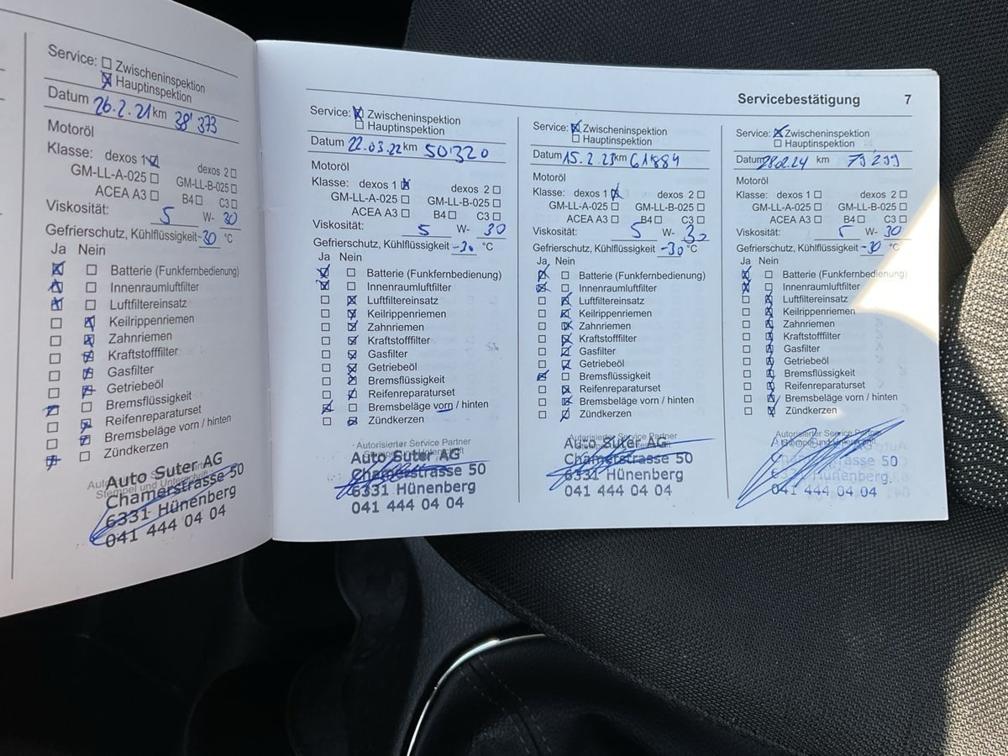 Service: Zwischeninspektion
Hauptinspektion
Datum 26.2.21 km 38'373
Motoröl
Klasse: dexos 1 dexos 2
GM-LL-A-025 GM-LL-B-025
ACEA A3 B4 C3
Viskosität: 5 W- 30
Gefrierschutz, Kühlflüssigkeit -30 °C
Ja Nein
Batterie (Funkfernbedienung)
Innenraumluftfilter
Luftfiltereinsatz
Keilrippenriemen
Zahnriemen
Kraftstofffilter
Gasfilter
Getriebeöl
Bremsflüssigkeit
Reifenreparaturset
Bremsbeläge vorn / hinten
Zündkerzen
Stempel und
Auto Suter AG
Chamerstrasse 50
6331 Hünenberg
041 444 04 04
Servicebestätigung 7
Service: Zwischeninspektion
Hauptinspektion
Datum 22.03.22 km 50'320
Motoröl
Klasse: dexos 1 dexos 2
GM-LL-A-025 GM-LL-B-025
ACEA A3 B4 C3
Viskosität: 5 W- 30
Gefrierschutz, Kühlflüssigkeit -30 °C
Ja Nein
Batterie (Funkfernbedienung)
Innenraumluftfilter
Luftfiltereinsatz
Keilrippenriemen
Zahnriemen
Kraftstofffilter
Gasfilter
Getriebeöl
Bremsflüssigkeit
Reifenreparaturset
Bremsbeläge vorn / hinten
Zündkerzen
Autorisierter Service Partner
Auto Suter AG
Chamerstrasse 50
6331 Hünenberg
041 444 04 04
Service: Zwischeninspektion
Hauptinspektion
Datum 15.2.23 km 61884
Motoröl
Klasse: dexos 1 dexos 2
GM-LL-A-025 GM-LL-B-025
ACEA A3 B4 C3
Viskosität: 5 W- 30
Gefrierschutz, Kühlflüssigkeit -30 °C
Ja Nein
Batterie (Funkfernbedienung)
Innenraumluftfilter
Luftfiltereinsatz
Keilrippenriemen
Zahnriemen
Kraftstofffilter
Gasfilter
Getriebeöl
Bremsflüssigkeit
Reifenreparaturset
Bremsbeläge vorn / hinten
Zündkerzen
Autorisierter Service Partner
Auto Suter AG
Chamerstrasse 50
6331 Hünenberg
041 444 04 04
Service: Zwischeninspektion
Hauptinspektion
Datum km
Motoröl
Klasse: dexos 1 dexos 2
GM-LL-A-025 GM-LL-B-025
ACEA A3 B4 C3
Viskosität: 5 W- 30
Gefrierschutz, Kühlflüssigkeit -30 °C
Ja Nein
Batterie (Funkfernbedienung)
Innenraumluftfilter
Luftfiltereinsatz
Keilrippenriemen
Zahnriemen
Kraftstofffilter
Gasfilter
Getriebeöl
Bremsflüssigkeit
Reifenreparaturset
Bremsbeläge vorn / hinten
Zündkerzen
Autorisierter Service Partner
50
041 444 04 04